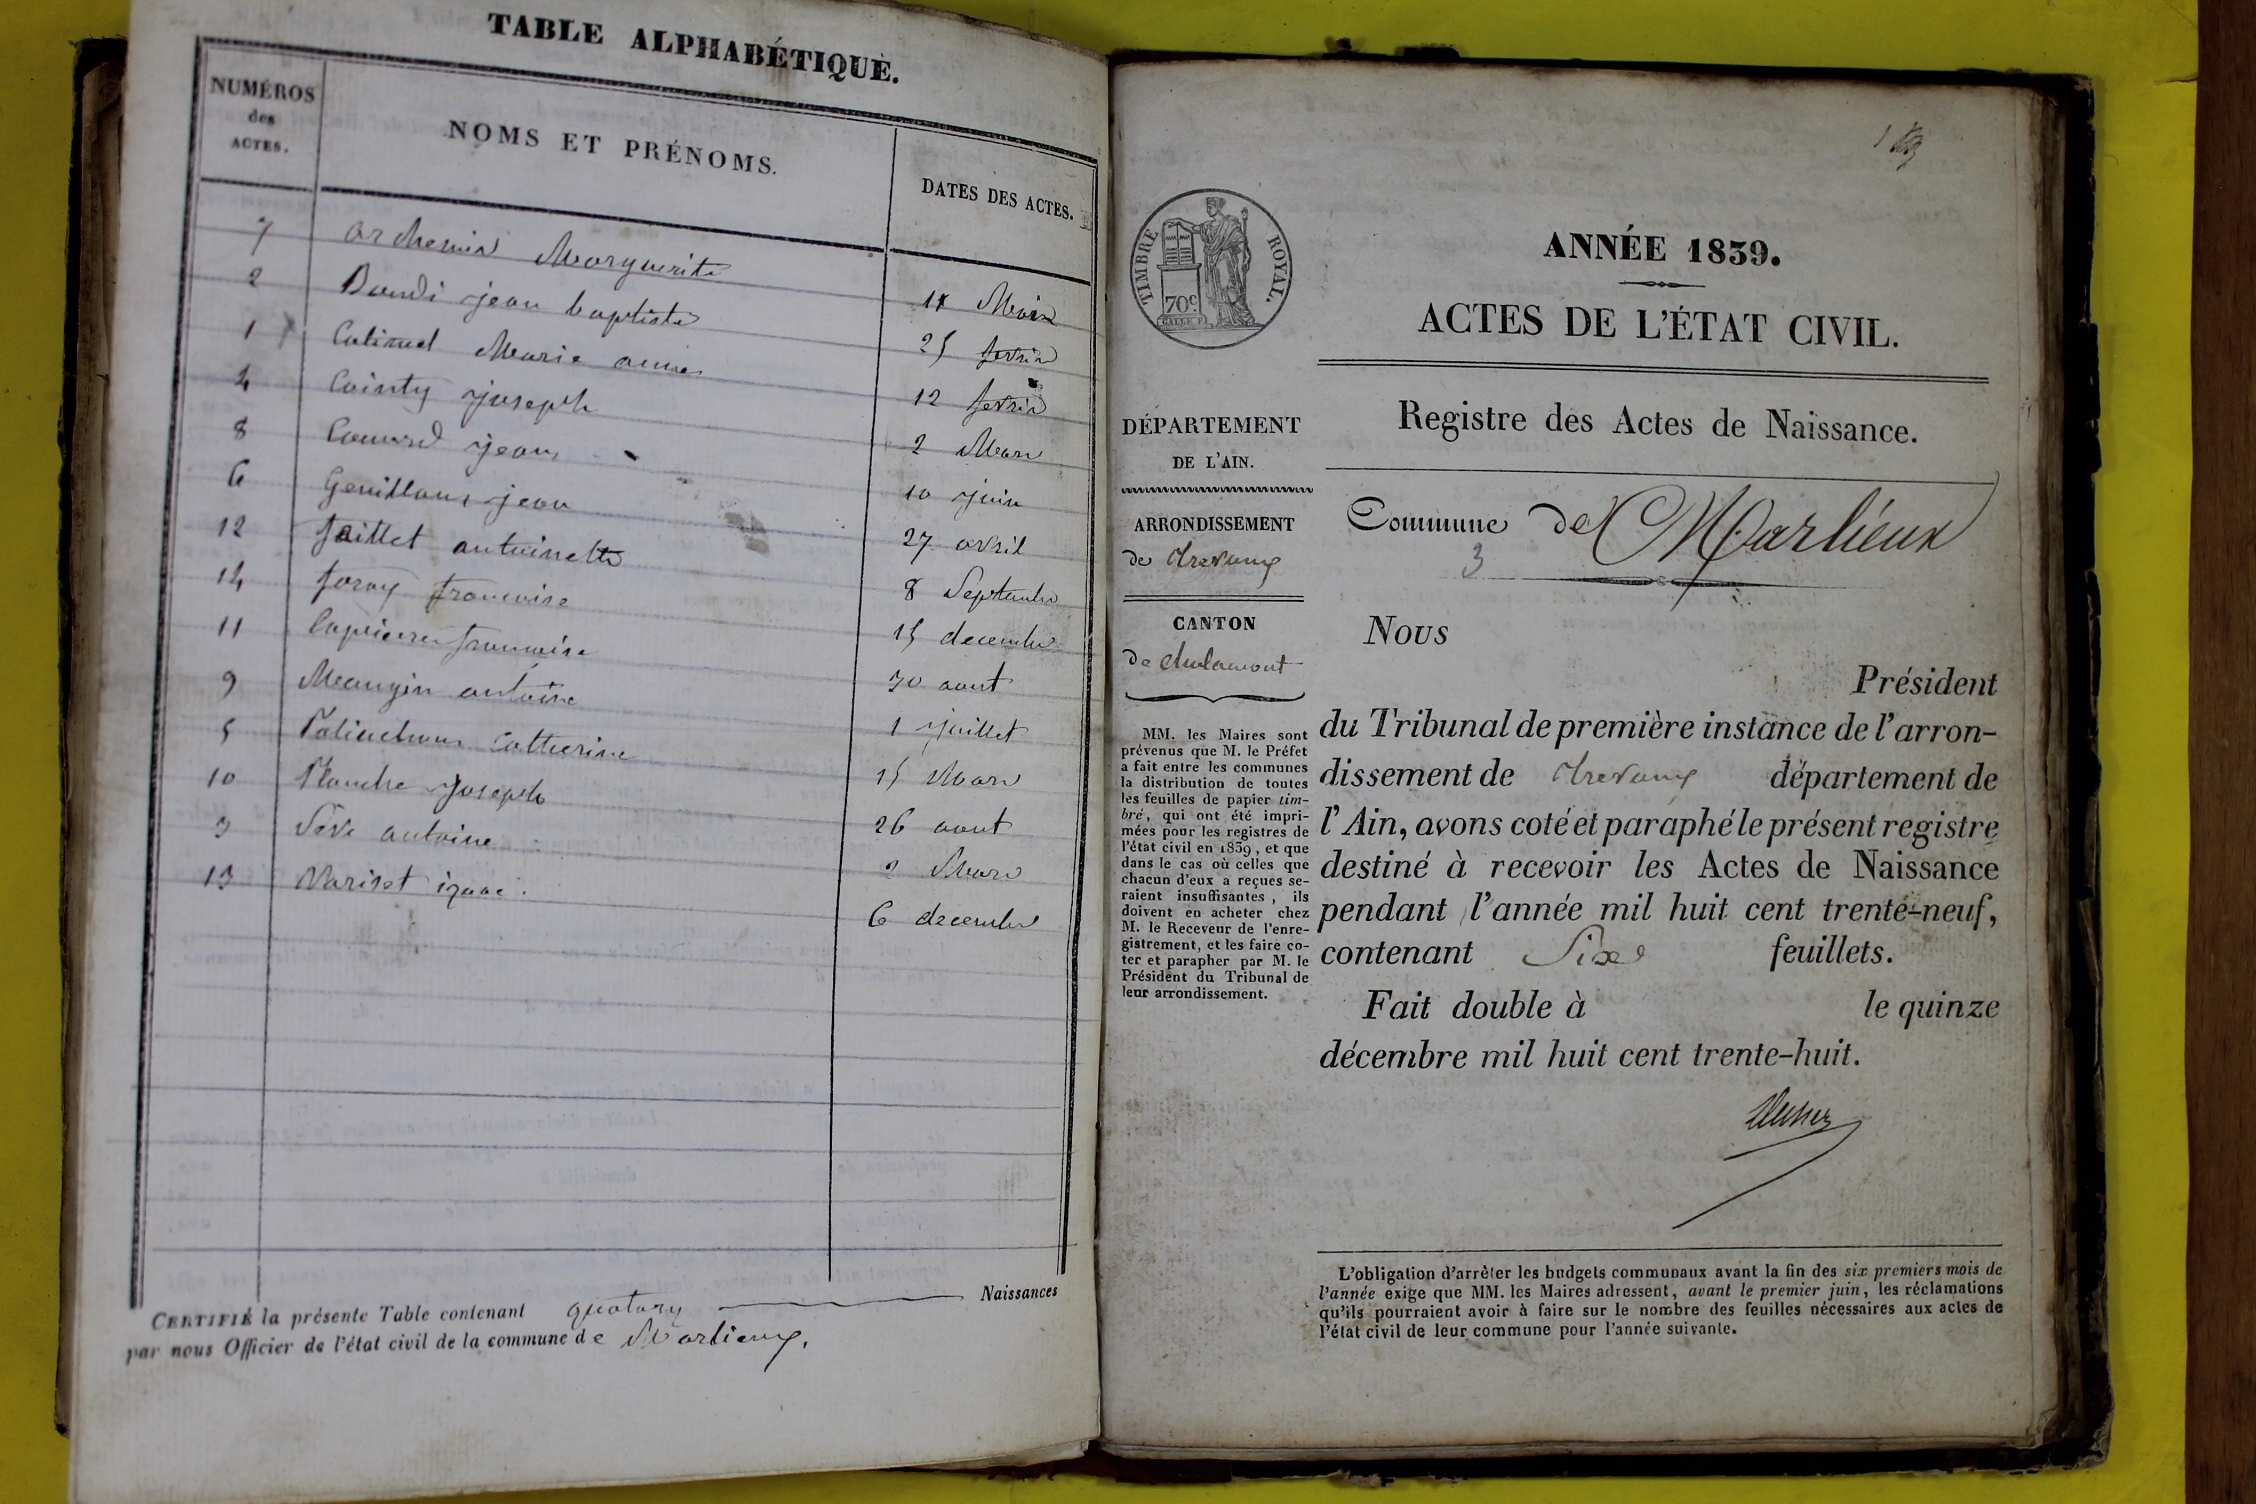 TABLE ALPHABÉTIQUE.
NUMÉROS
des
ACTES.
NOMS ET PRÉNOMS.
DATES DES ACTES.
7 Marguerite 11 Mai
2 Baudi jean baptiste 25 fevrier
1 Marie anne 12 fevrier
4 Cointy joseph 2 Mars
8 jean 10 juin
6 jean 27 avril
12 faillet antoinette 8 Septembre
14 foray francoise 15 decembre
11 Lapierre francoise 30 aout
9 Mangin antoine 1 juillet
5 Catherine 15 Mars
10 Planche joseph 26 aout
3 Sève antoine 2 Mars
13 6 decembre
CERTIFIÉ la présente Table contenant quatorze Naissances
par nous Officier de l'état civil de la commune de Marlieux.
TIMBRE ROYAL.
70c
ANNÉE 1839.
ACTES DE L'ÉTAT CIVIL.
Registre des Actes de Naissance.
DÉPARTEMENT
DE L'AIN.
ARRONDISSEMENT
de Trevoux
CANTON
de Chalamont
MM. les Maires sont
prévenus que M. le Préfet
a fait entre les communes
la distribution de toutes
les feuilles de papier tim-
bré, qui ont été impri-
mées pour les registres de
l'état civil en 1839, et que
dans le cas où celles que
chacun d'eux a reçues se-
raient insuffisantes, ils
doivent en acheter chez
M. le Receveur de l'enre-
gistrement, et les faire co-
ter et parapher par M. le
Président du Tribunal de
leur arrondissement.
Commune de Marlieux
3
Nous
Président
du Tribunal de première instance de l'arron-
dissement de Trevoux département de
l'Ain, avons coté et paraphé le présent registre
destiné à recevoir les Actes de Naissance
pendant l'année mil huit cent trente-neuf,
contenant Six feuillets.
Fait double à le quinze
décembre mil huit cent trente-huit.
L'obligation d'arrêter les budgets communaux avant la fin des six premiers mois de
l'année exige que MM. les Maires adressent, avant le premier juin, les réclamations
qu'ils pourraient avoir à faire sur le nombre des feuilles nécessaires aux actes de
l'état civil de leur commune pour l'année suivante.